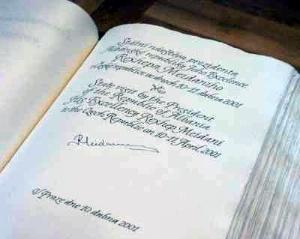 Státní návštěva prezidenta
Albánské republiky Jeho Excelence
Rexhepa Meidaniho
v České republice ve dnech 10.-11. dubna 2001
State visit by the President
of the Republic of Albania
His Excellency Rexhep Meidani
to the Czech Republic on 10-11 April 2001
R Meidani
V Praze dne 10. dubna 2001